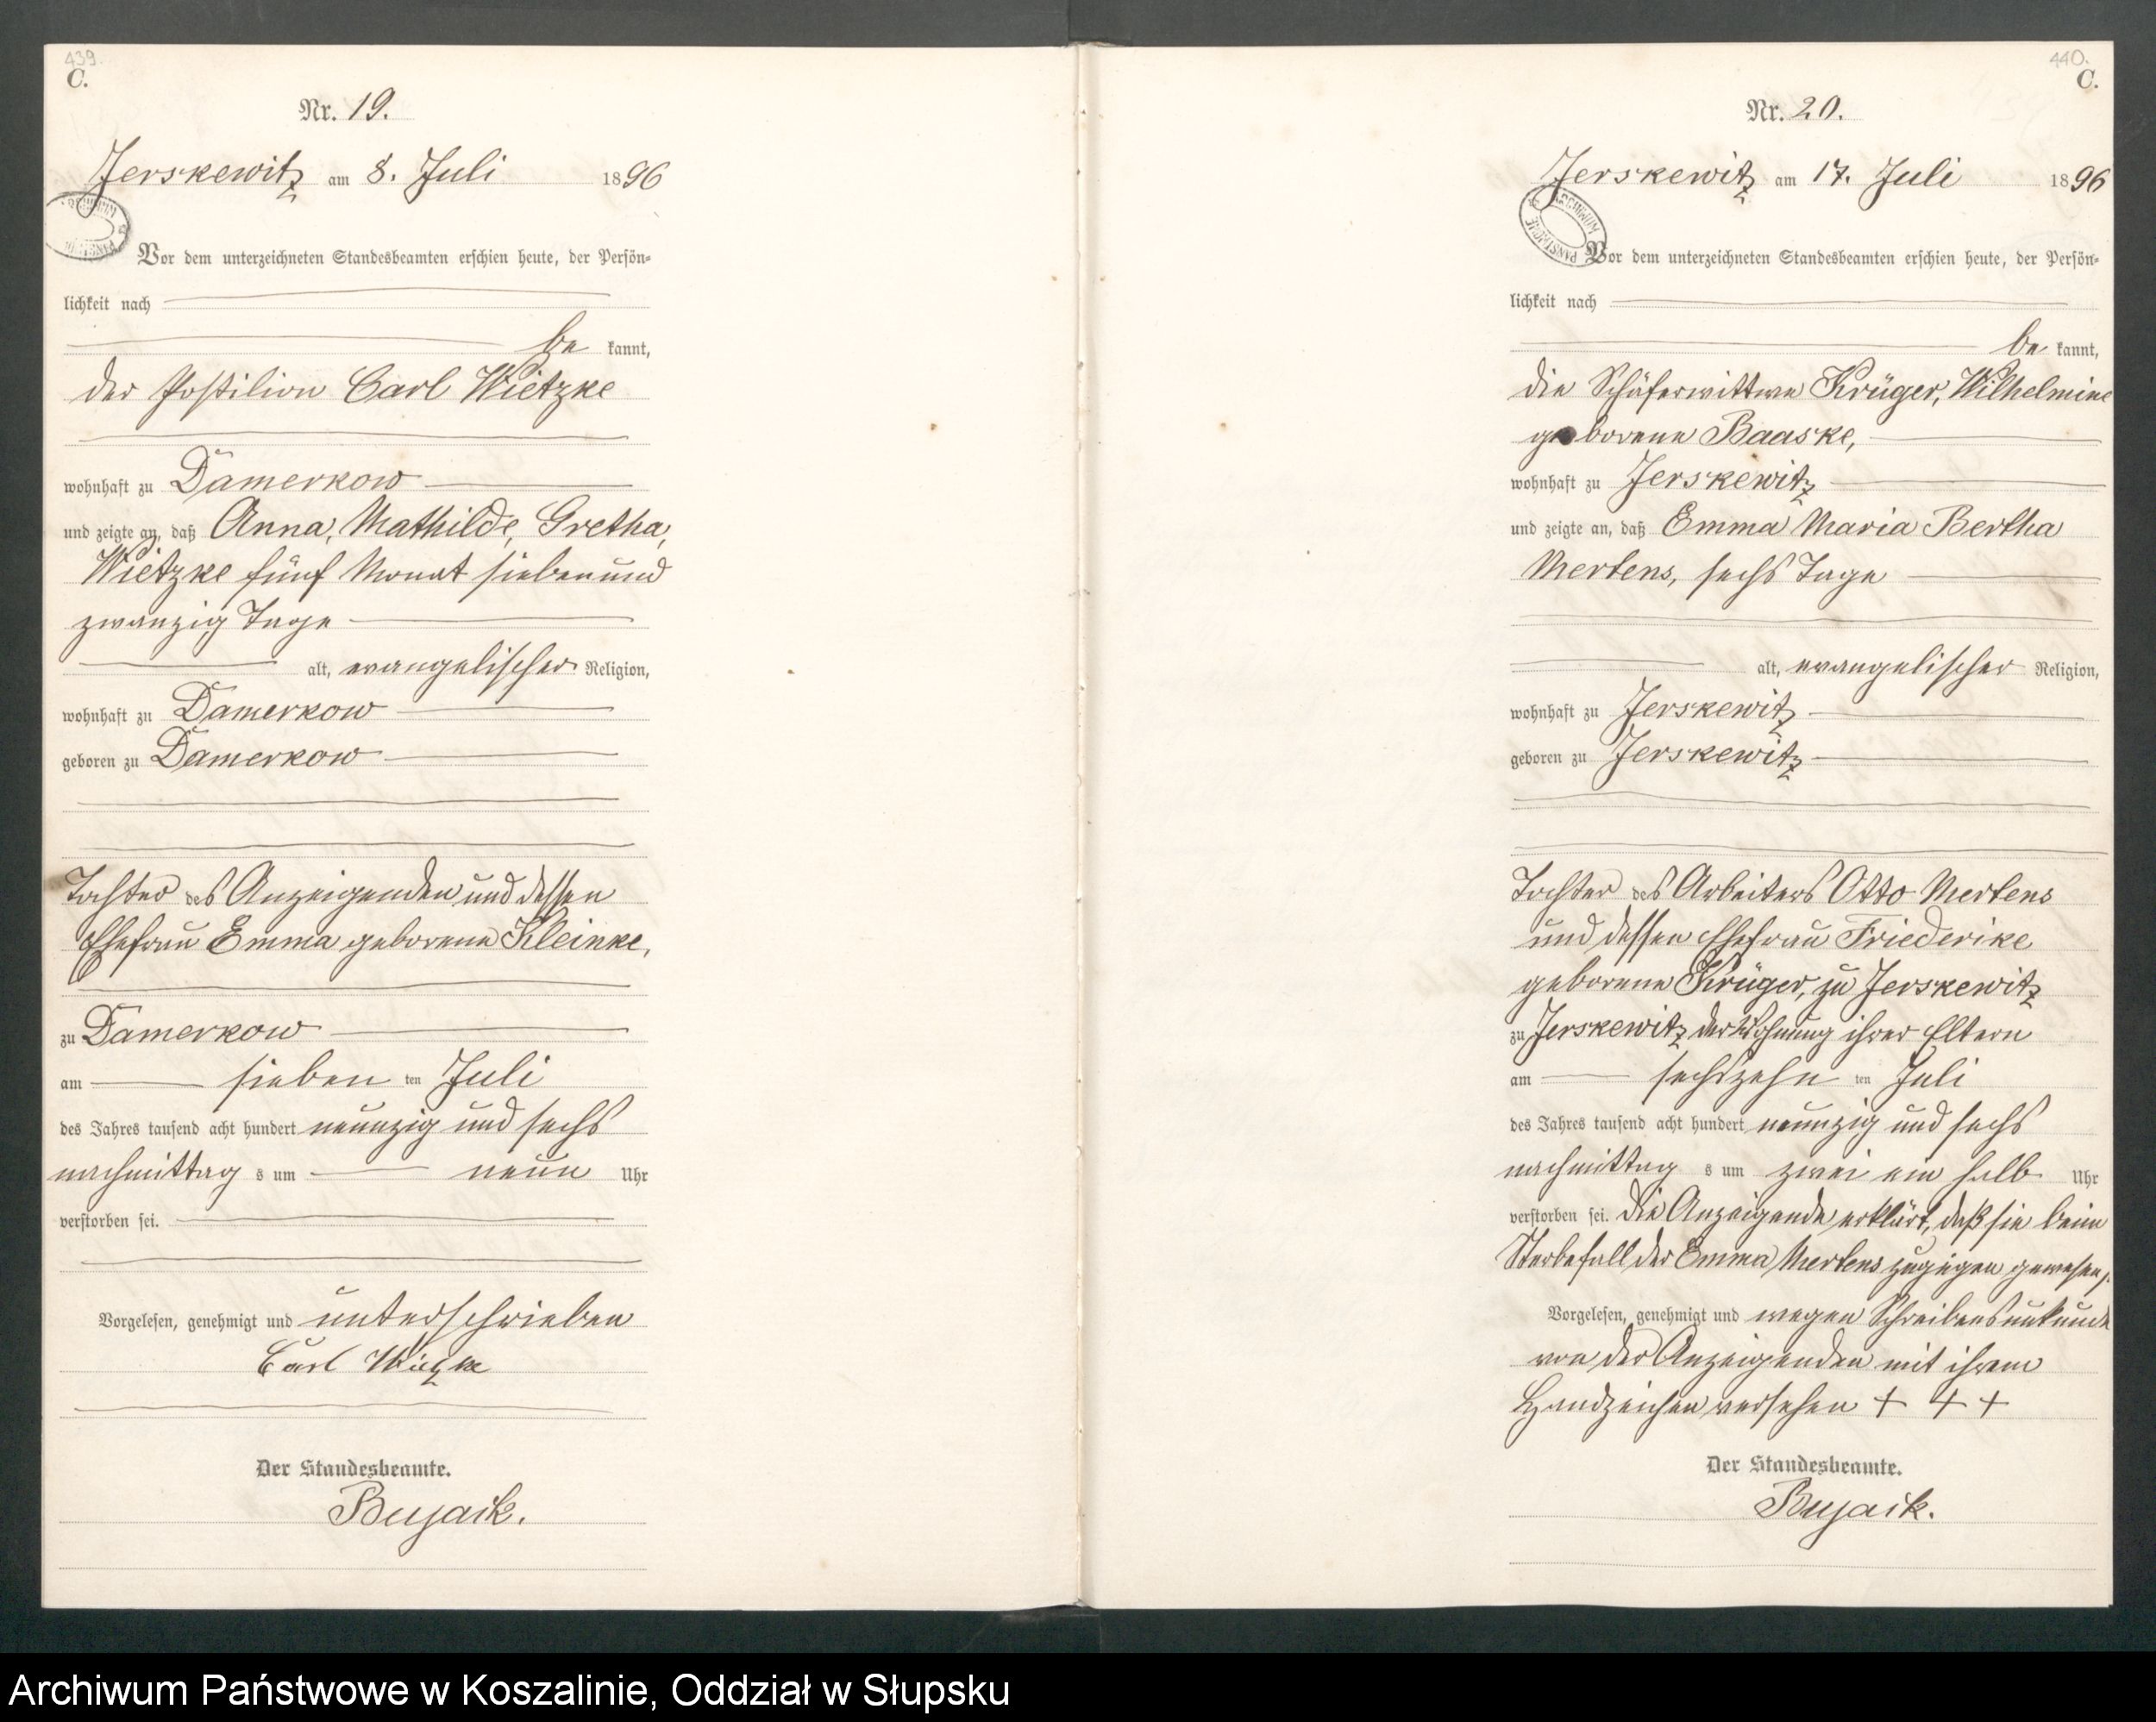 439.
C.
Nr. 19.
Jerskewitz am 8. Juli 1896
Vor dem unterzeichneten Standesbeamten erschien heute, der Persön-
lichkeit nach
be kannt,
der Postilion Carl Wietzke
wohnhaft zu Damerkow
und zeigte an, daß Anna, Mathilde, Gretha,
Wietzke fünf Monat sieben und
zwanzig Tage
alt, evangelischer Religion,
wohnhaft zu Damerkow
geboren zu Damerkow
Tochter des Anzeigenden und dessen
Ehefrau Emma geborene Kleinke,
zu Damerkow
am sieben ten Juli
des Jahres tausend acht hundert neunzig und sechs
nachmittag s um neun Uhr
verstorben sei.
Vorgelesen, genehmigt und unterschrieben
Carl Wietzke
Der Standesbeamte.
Bujack.
440.
C.
Nr. 20.
Jerskewitz am 17. Juli 1896
ARCHIWUM PAŃSTWOWE
Vor dem unterzeichneten Standesbeamten erschien heute, der Persön-
lichkeit nach
be kannt,
die Schäferwittwe Krüger, Wilhelmine
geborene Baaske,
wohnhaft zu Jerskewitz
und zeigte an, daß Emma Maria Bertha
Mertens, sechs Tage
alt, evangelischer Religion,
wohnhaft zu Jerskewitz
geboren zu Jerskewitz
Tochter des Arbeiters Otto Mertens
und dessen Ehefrau Friederike
geborene Krüger, zu Jerskewitz
zu Jerskewitz der Wohnung ihrer Eltern
am sechszehn ten Juli
des Jahres tausend acht hundert neunzig und sechs
nachmittag s um zwei ein halb Uhr
verstorben sei. Die Anzeigende erklärt, daß sie beim
Sterbefall der Emma Mertens zugegen gewesen,
Vorgelesen, genehmigt und wegen Schreibensunkunde
von der Anzeigenden mit ihrem
Handzeichen versehen + + +
Der Standesbeamte.
Bujack.
Archiwum Państwowe w Koszalinie, Oddział w Słupsku